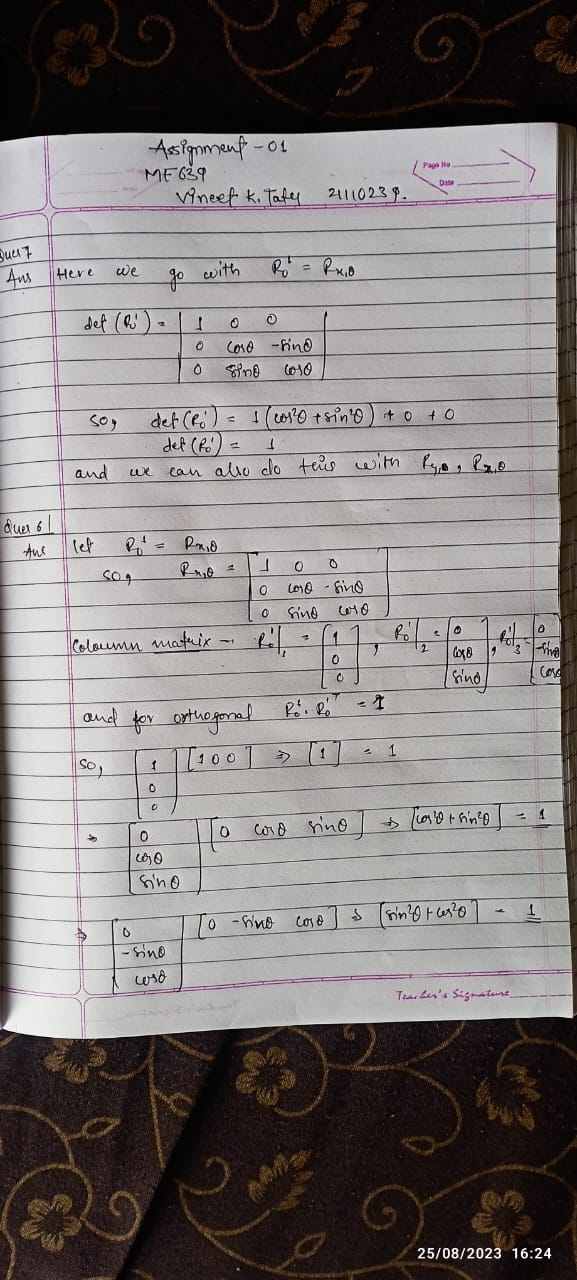 Assignment - 01
ME639
Vineet K. Tafy 21110239.
Page No
Date
Ques 7
Ans Here we go with R₀¹ = Rx,θ
det (R₀¹) = | 1 0 0 |
| 0 cosθ -sinθ |
| 0 sinθ cosθ |
so, det (R₀¹) = 1 (cos²θ + sin²θ) + 0 + 0
det (R₀¹) = 1
and we can also do this with Ry,θ, Rz,θ
Ques 6
Ans let R₀¹ = Rx,θ
so, Rx,θ = [ 1 0 0 ]
[ 0 cosθ -sinθ ]
[ 0 sinθ cosθ ]
Coloumn matrix → R₀¹|₁ = [ 1 ], R₀¹|₂ = [ 0 ], R₀¹|₃ = [ 0 ]
[ 0 ] [ cosθ ] [ -sinθ ]
[ 0 ] [ sinθ ] [ cosθ ]
and for orthogonal R₀¹. R₀¹ᵀ = 1
so, [ 1 ] [ 1 0 0 ] ⇒ [1] = 1
[ 0 ]
[ 0 ]
⇒ [ 0 ] [ 0 cosθ sinθ ] ⇒ [cos²θ + sin²θ] = 1
[ cosθ ]
[ sinθ ]
⇒ [ 0 ] [ 0 -sinθ cosθ ] ⇒ [sin²θ + cos²θ] = 1
[ -sinθ ]
[ cosθ ]
Teacher's Signature
25/08/2023 16:24